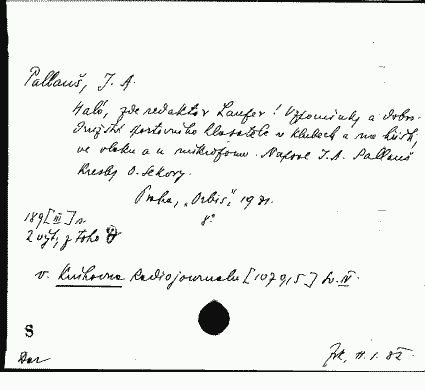 Pallauš, J. A.
Haló, zde redaktor Laufer! Vzpomínky a dobro-
družství sportovního hlasatele v klubech a na hřišti,
ve vlaku a u mikrofonu. Napsal J. A. Pallauš
Kresby O. Sekory.
Praha, „Orbis", 1931.
8°
189[III] s.
2 výt., z toho
v. Knihovna Radiojournalu [1079,5] sv. IV.
S
Dar
11.1.82